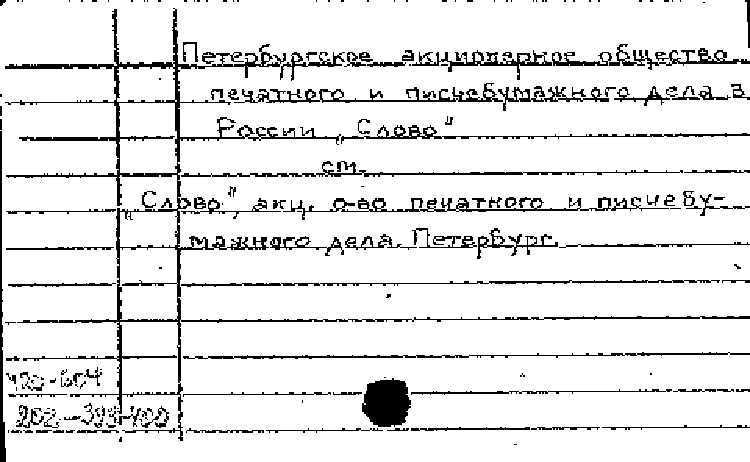 Петербургское акционерное общество
печатного и писчебумажного дела в
России „Слово"
см.
„Слово", акц. о-во печатного и писчебу-
мажного дела. Петербург.
420-604
202-399-400